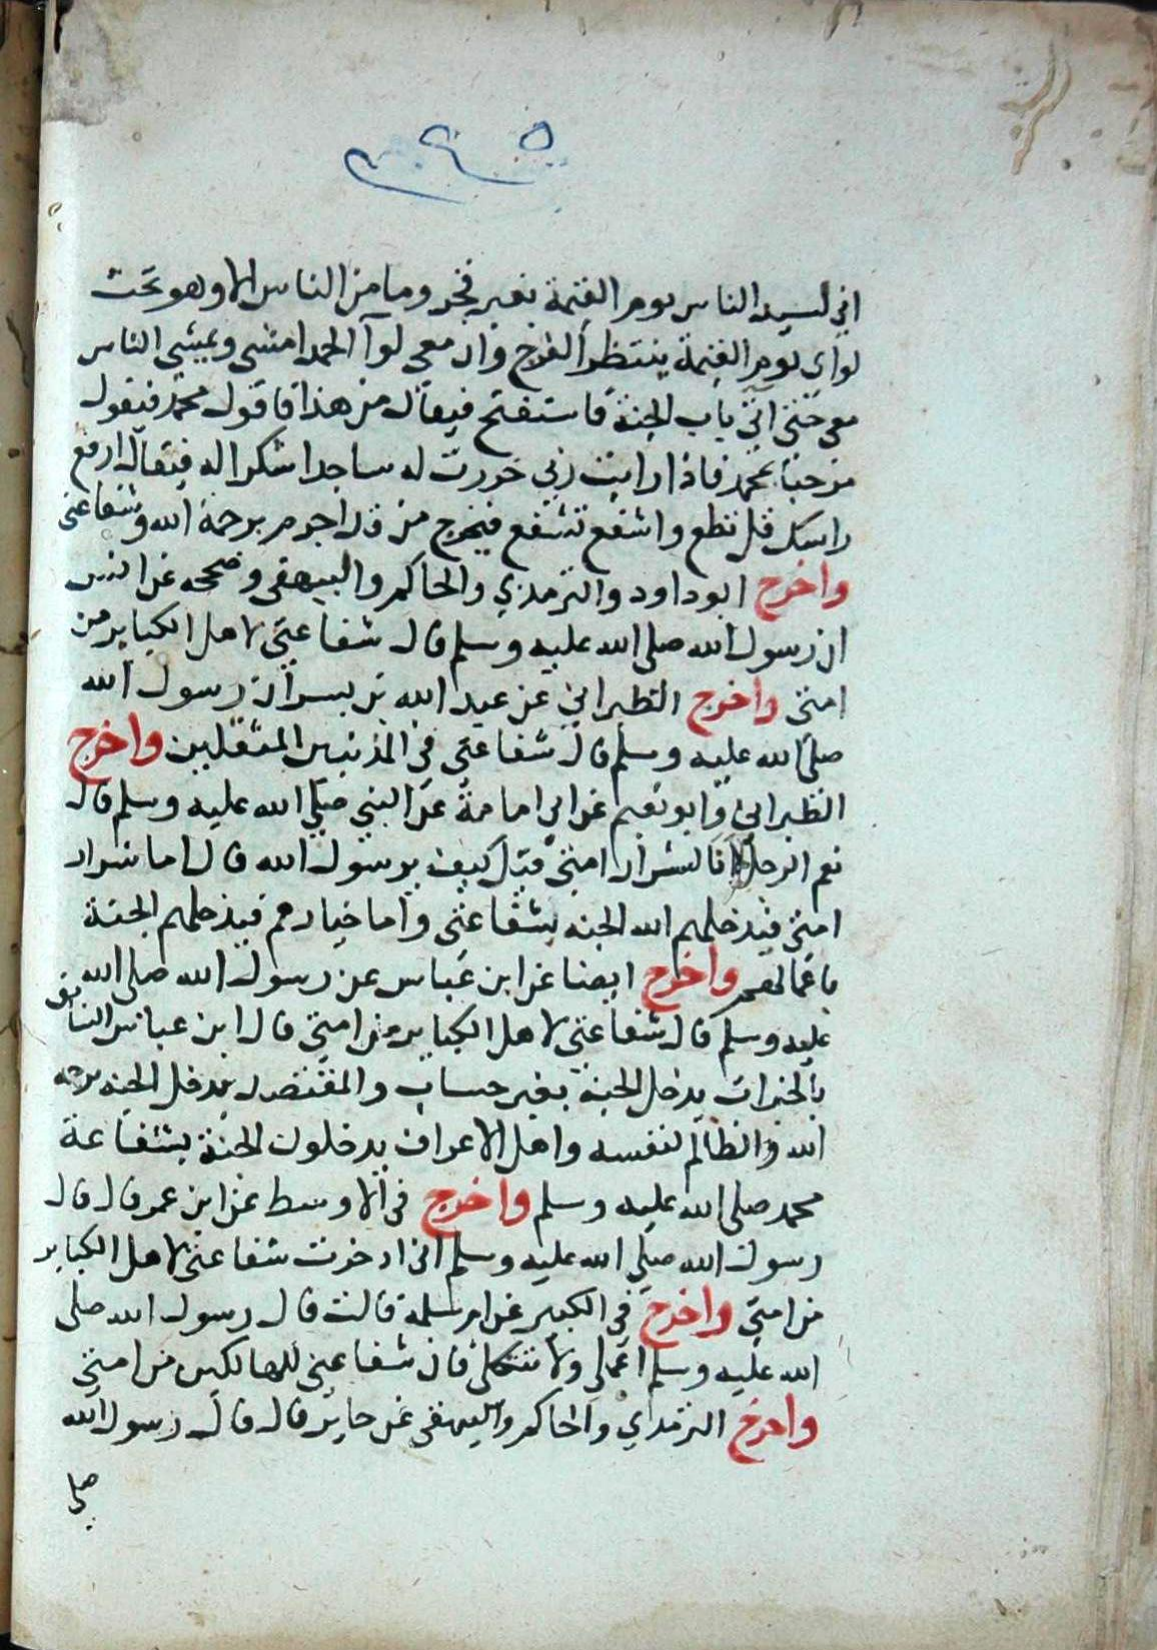 اني لسيد الناس يوم القيمة بغير فخر وما من الناس الا وهو تحت
لواى يوم القيمة ينتظر الفرج وان معى لوآ الحمد امشى ويمشى الناس
معى حتى اتى باب الجنة فاستفتح فيقال من هذا فاقول محمد فيقول
مرحبا بمحمد فاذا رايت ربي خررت له ساجدا شكرا له فيقال ارفع
راسك قل تطع واشفع تشفع فيخرج من قد اجرم برحمة الله وشفاعتى
واخرج ابو داود والترمذي والحاكم والبيهقى وصححه عن انس
ان رسول الله صلى الله عليه وسلم قال شفاعتى لاهل الكباير من
امتى واخرج الطبراني عن عبد الله بن بسر ان رسول الله
صلى الله عليه وسلم قال شفاعتى في المذنبين المثقلين واخرج
الطبراني وابو نعيم عن ابي امامة عن النبي صلى الله عليه وسلم قال
نعم الرجل انا لشرار امتى قيل كيف يرسول الله قال اما شرار
امتى فيدخلهم الله الجنه بشفاعتى واما خيارهم فيدخلهم الجنة
باعمالهم واخرج ايضا عن ابن عباس عن رسول الله صلى الله
عليه وسلم قال شفاعتى لاهل الكباير من امتى قال ابن عباس السابق
بالخيرات يدخل الجنة بغير حساب والمقتصد يدخل الجنه برحمه
الله والظالم لنفسه واهل الاعراف يدخلون الجنة بشفاعة
محمد صلى الله عليه وسلم واخرج في الاوسط عن ابن عمر قال قال
رسول الله صلى الله عليه وسلم انى ادخرت شفاعتى لاهل الكباير
من امتى واخرج في الكبير عن ام سلمة قالت قال رسول الله صلى
الله عليه وسلم اعملي ولا تتكلى فان شفاعتى للهالكين من امتى
واخرج الترمذي والحاكم والبيهقى عن جابر قال قال رسول الله
صلى